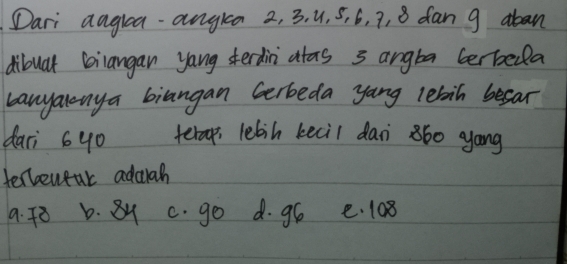 . Dari angka - angka 2, 3, 4, 5, 6, 7, 8 dan 9 akan
dibuat bilangan yang terdiri atas 3 angka berbeda
banyaknya bilangan berbeda yang lebih besar
dari 640 tetapi lebih kecil dari 860 yang
terbentuk adalah
a. 78 b. 84 c. 90 d. 96 e. 108